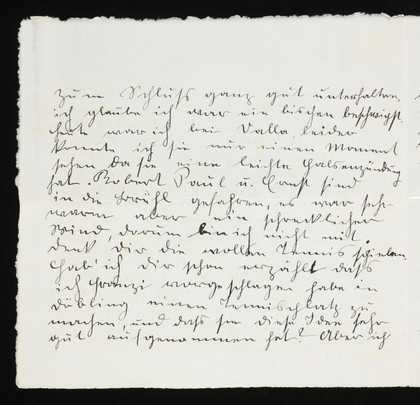 zum Schluss ganz gut unterhalten,
ich glaube ich war ein bischen beschwipst.
heute war ich bei Dalla, leider
konnte ich sie nur einen Moment
sehen da sie eine leichte Halsenzündung
hat. Robert Paul u. Ernst sind
in die Brühl gefahren, es war sehr
warm aber ein schrecklicher
Wind, darum bin ich nicht mit.
denk dir die wollen Tennis spielen
Hab' ich dir schon erzählt dass
ich Franzi vorgeschlagen habe in
Döbling einen Tennisplatz zu
machen, und dass sie diese Idee sehr
gut aufgenommen hat? Aber ich